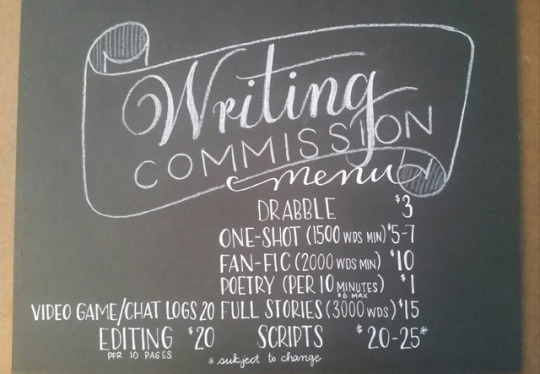 Writing
COMMISSION
menu
DRABBLE $3
ONE-SHOT (1500 WDS MIN) $5-7
FAN-FIC (2000 WDS MIN) $10
POETRY (PER 10 MINUTES) $1
$6 MAX
VIDEO GAME/CHAT LOGS 20 FULL STORIES (3000 WDS) $15
EDITING $20 SCRIPTS $20-25*
PER 10 PAGES
*subject to change